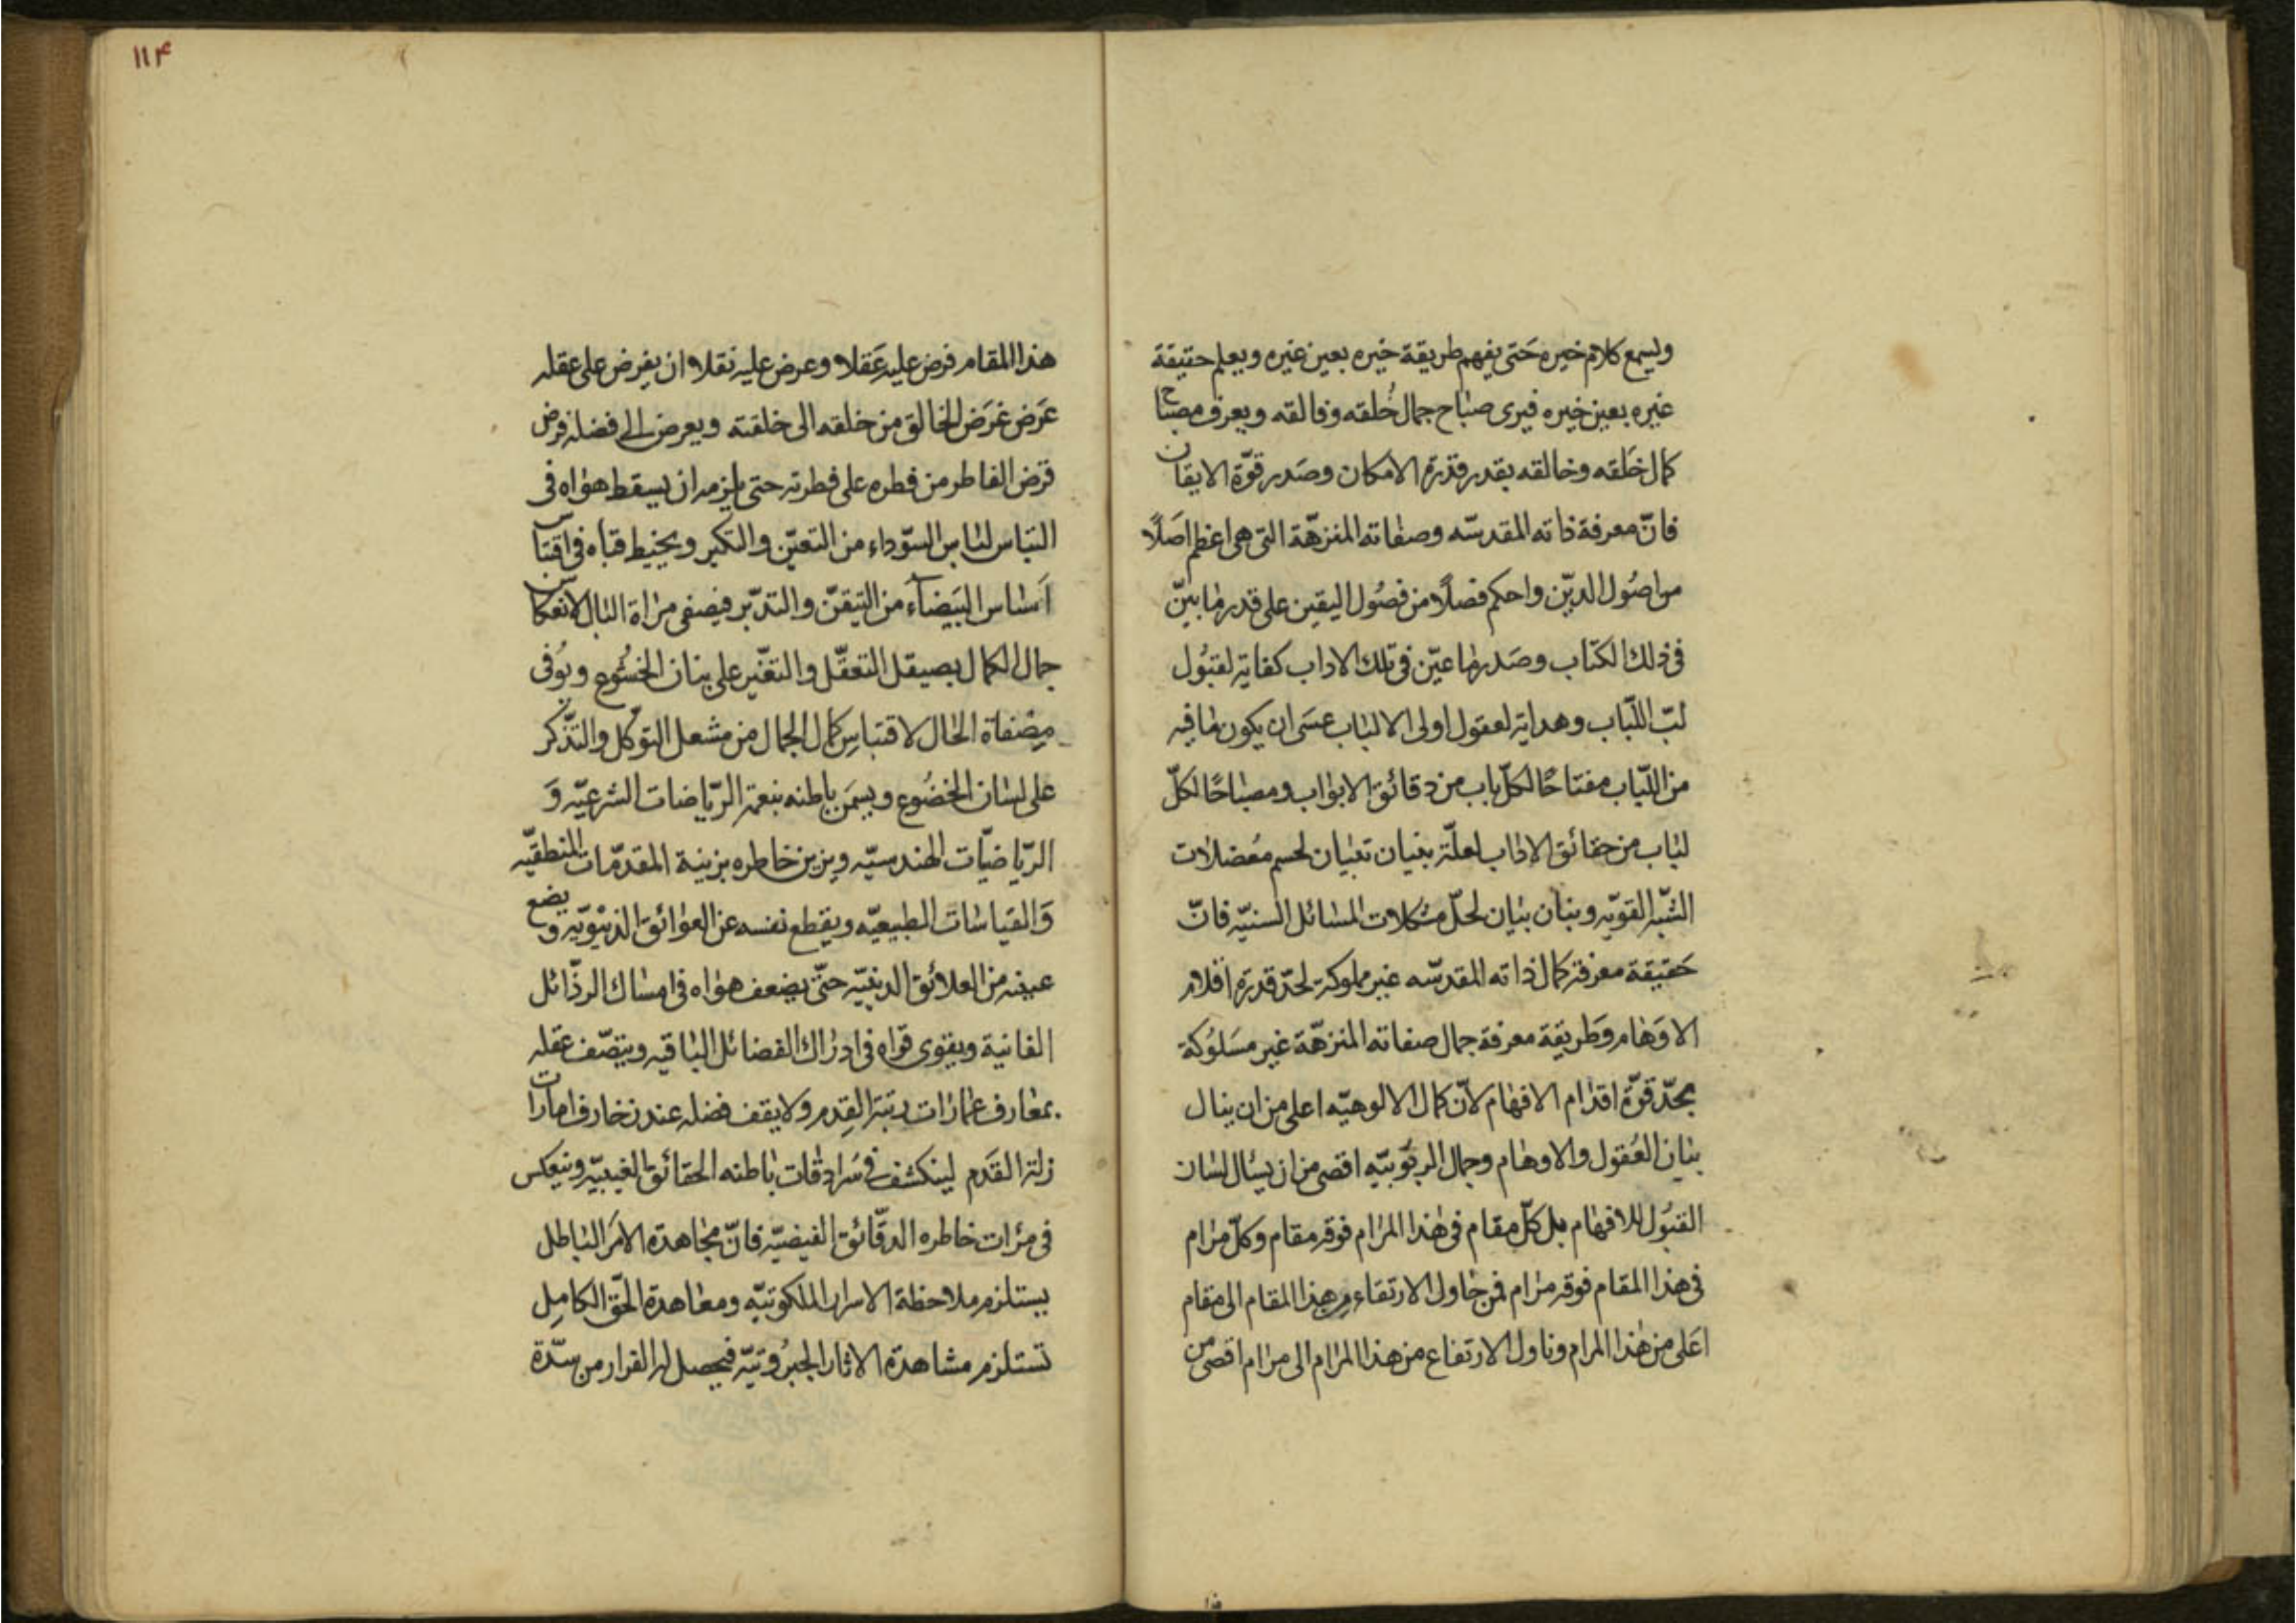 وليسمع كلام خيره حَتى يفهم طريقة خيره بعين غيره ويعلم حقيقة
غيره بعين خيره فيرى صباح جمال خُلقه وفالقه ويعرف مصباح
كمال خَلقه وخالقه بقدر قدرة الامكان وصَدر قوّة الايقان
فانّ معرفة ذاته المقدسّه وصفاته المنزهّة التى هى اعظم اصَلاً
من اصُول الديّن واحكم فصلاً من فصُول اليقين على قدر ما بينّ
فى ذلك الكتاب وصَدر ما عيّن فى تلك الاداب كفاية لقبُول
لبّ اللّباب وهداية لعقول اولى الالباب عسَى ان يكون ما فيه
من اللّباب مفتاحًا لكلّ باب من دقائق الابواب ومصباحًا لكلّ
لباب من حقائق الاداب لعلّة بنيان تبيان لحسم مُعضلات
الشّبه القويّه وبنان بيان لحلّ مشكلات المسائل السنيّه فانّ
حَقيقة معرفة كمال ذاته المقدسّه غير مملوكة لحدّ قدرة اقلام
الاوَهام وطَريقة معرفة جمال صفاته المنزهّة غير مسَلوُكة
بحدّ قوّة اقدام الافهام لانّ كمال الالوهيّه اعلى من ان ينال
بنان العُقول والاوهام وجمال الربوُبيّه اقصى من ان يسئال لسان
القبُول للافهام بل كلّ مقام فى هذا المرام فوقه مقام وكلّ مرام
فى هذا المقام فوقه مرام فمن حاول الارتقاء من هذا المقام الى مقام
اعَلى من هذا المرام وناول الارتفاع من هذا المرام الى مرام اقصى من
١١۴
هذا المقام فرض عليه عَقلا وعرض عليه نقلا ان يفرض على عقله
عَرَض غَرَض الخالق من خلقه الى خلقته ويعرض الى فضله فرض
قرض الفاطر من فطره على فطرته حتى يلزمه ان يسقط هواه فى
التباس لباس السّوداء من التعيّن والتكبر ويخيط قباه فى اقتباس
اَساس البَيضآء من التيقنّ والتدبّر فيصفى مراة البال لانعكاس
جمال الكمال بصيقل التعقّل والتغيّر على بنان الخشُوع ويُوفى
مِصْفاة الحال لاقتباسِ كمال الجمال من مشعل التوكّل والتذّكر
على لسان الخضُوع ويسمَن باطنه بنعمة الريّاضات الشرعيّه وَ
الريّاضيّات الهندسيّه ويزين خاطره بزينة المقدمّات المنطقيّه
وَالقياسات الطبيعيّه ويقطع نفسه عن العوائق الدنيْويّه ويضع
عينه من العلائق الدنييّه حتّى يضعف هواه فى امساك الرذّائل
الفانية ويقوى قواه فى ادراك الفضائل الباقيه ويتصّف عقله
بمعارف عمارات رتبة القِدم ولا يقف فضله عند زخارف امارات
زلة القَدَم لينكشف فى سَرادقات باطنه الحقائق الغيبيّه وينعكس
فى مرات خاطره الدقّائق الفيضيّه فانّ مجاهدة الامَر الباطل
يستلزم ملاحظة الاسرار الملكوتيّه ومعاهدة الحّق الكامِل
تستلزم مشاهدة الاثار الجبرُوتيّه فيحصل له القرار من سدّة